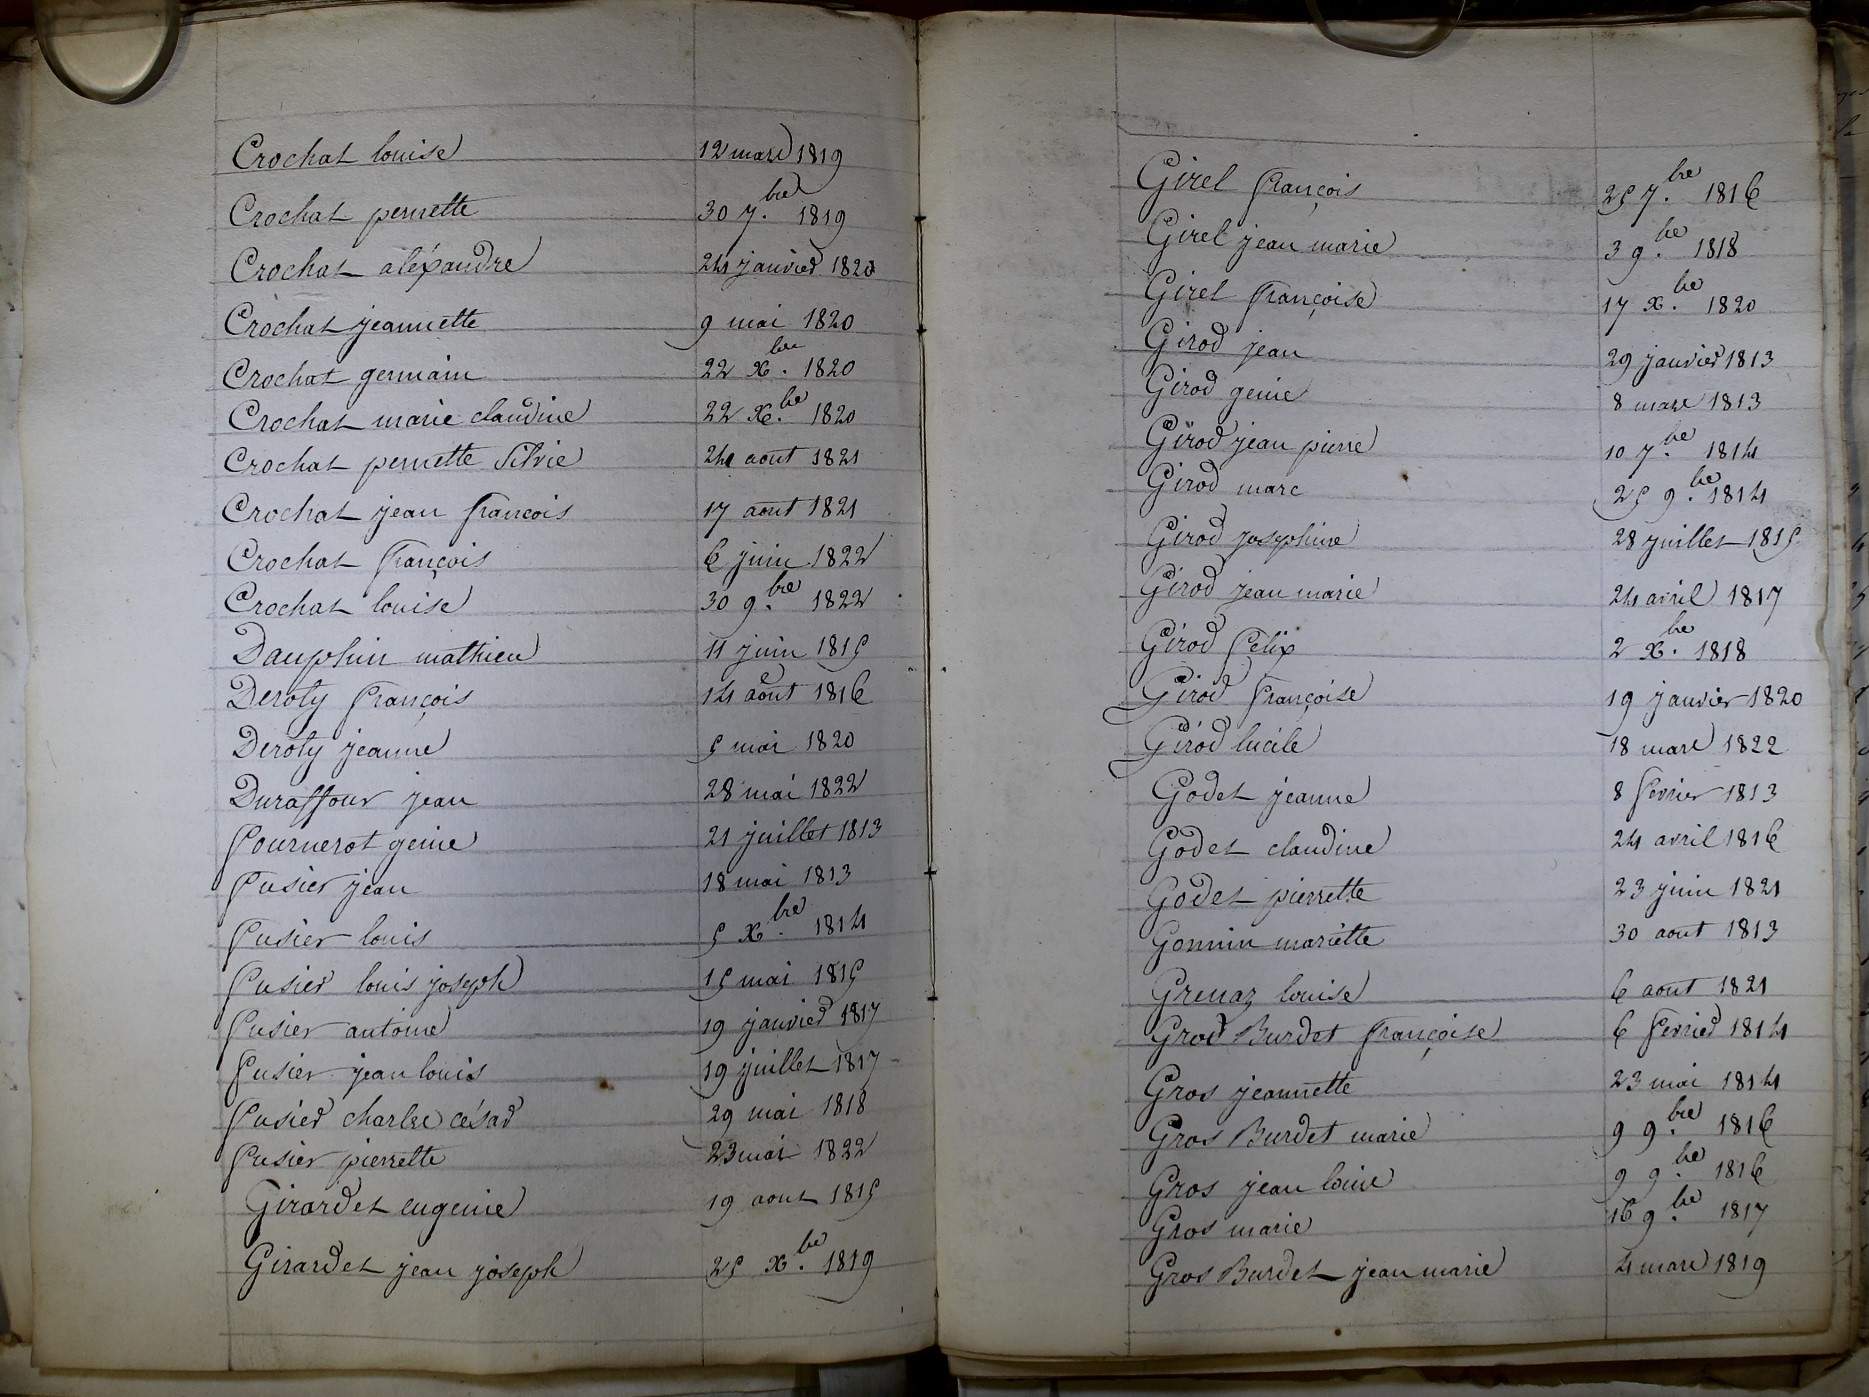 Crochat louise 12 mars 1819
Crochat pernette 30 7.bre 1819
Crochat aléxandre 24 janvier 1820
Crochat jeannette 9 mai 1820
Crochat germain 22 X.bre 1820
Crochat marie claudine 22 X.bre 1820
Crochat pernette Silvie 24 aout 1821
Crochat jean françois 17 aout 1821
Crochat françois 6 juin 1822
Crochat louise 30 9.bre 1822
Dauphin mathieu 11 juin 1815
Deroty françois 14 aout 1816
Deroty jeanne 5 mai 1820
Duraffour jean 28 mai 1822
fournerot genie 21 juillet 1813
fusier jean 18 mai 1813
fusier louis 5 X.bre 1814
fusier louis joseph 15 mai 1815
fusier antoine 19 janvier 1817
fusier jean louis 19 juillet 1817
fusier charles césar 29 mai 1818
fusier pierrette 23 mai 1822
Girardet eugenie 19 aout 1815
Girardet jean joseph 25 X.bre 1819
Girel françois 25 7.bre 1816
Girel jean marie 3 9.bre 1818
Girel françoise 17 X.bre 1820
Girod jean 29 janvier 1813
Girod genie 8 mars 1813
Girod jean pierre 10 7.bre 1814
Girod marc 25 9.bre 1814
Girod josephine 28 juillet 1815
Girod jean marie 24 avril 1817
Girod félix 2 X.bre 1818
Girod françoise 19 janvier 1820
Girod lucile 18 mars 1822
Godet jeanne 8 fevrier 1813
Godet claudine 24 avril 1816
Godet pierrette 23 juin 1821
Gonnin mariette 30 aout 1813
Grenaz louise 6 aout 1821
Gros Burdet françoise 6 fevrier 1814
Gros jeannette 23 mai 1814
Gros Burdet marie 9 9.bre 1816
Gros jean louis 9 9.bre 1816
Gros marie 16 9.bre 1817
Gros Burdet jean marie 4 mars 1819